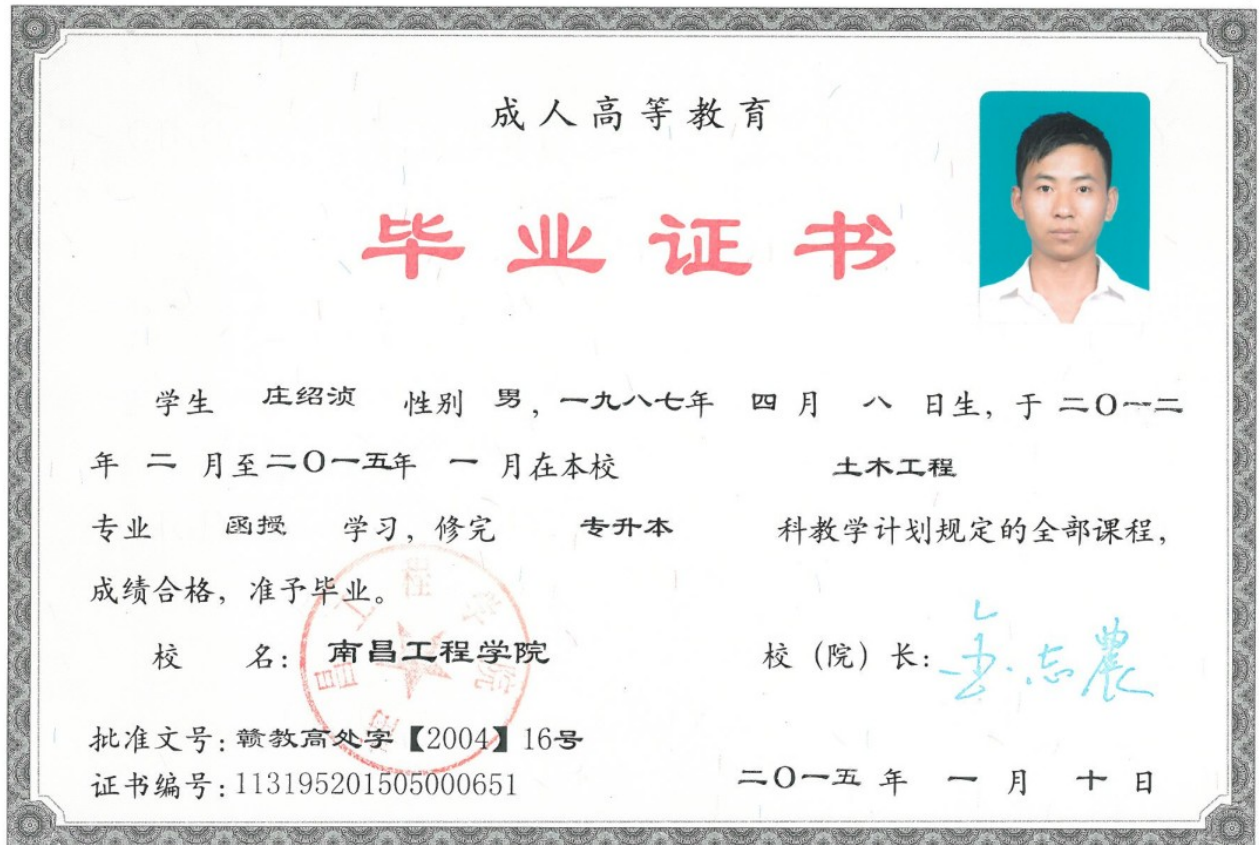 成人高等教育
毕业证书
学生 庄绍浈 性别 男，一九八七年 四 月 八 日生，于 二〇一二
年 二 月至二〇一五年 一 月在本校 土木工程
专业 函授 学习，修完 专升本 科教学计划规定的全部课程，
成绩合格，准予毕业。
校 名：南昌工程学院 校（院）长：金志農
南昌工程学院
批准文号：赣教高处字【2004】16号
证书编号：113195201505000651
二〇一五 年 一 月 十 日